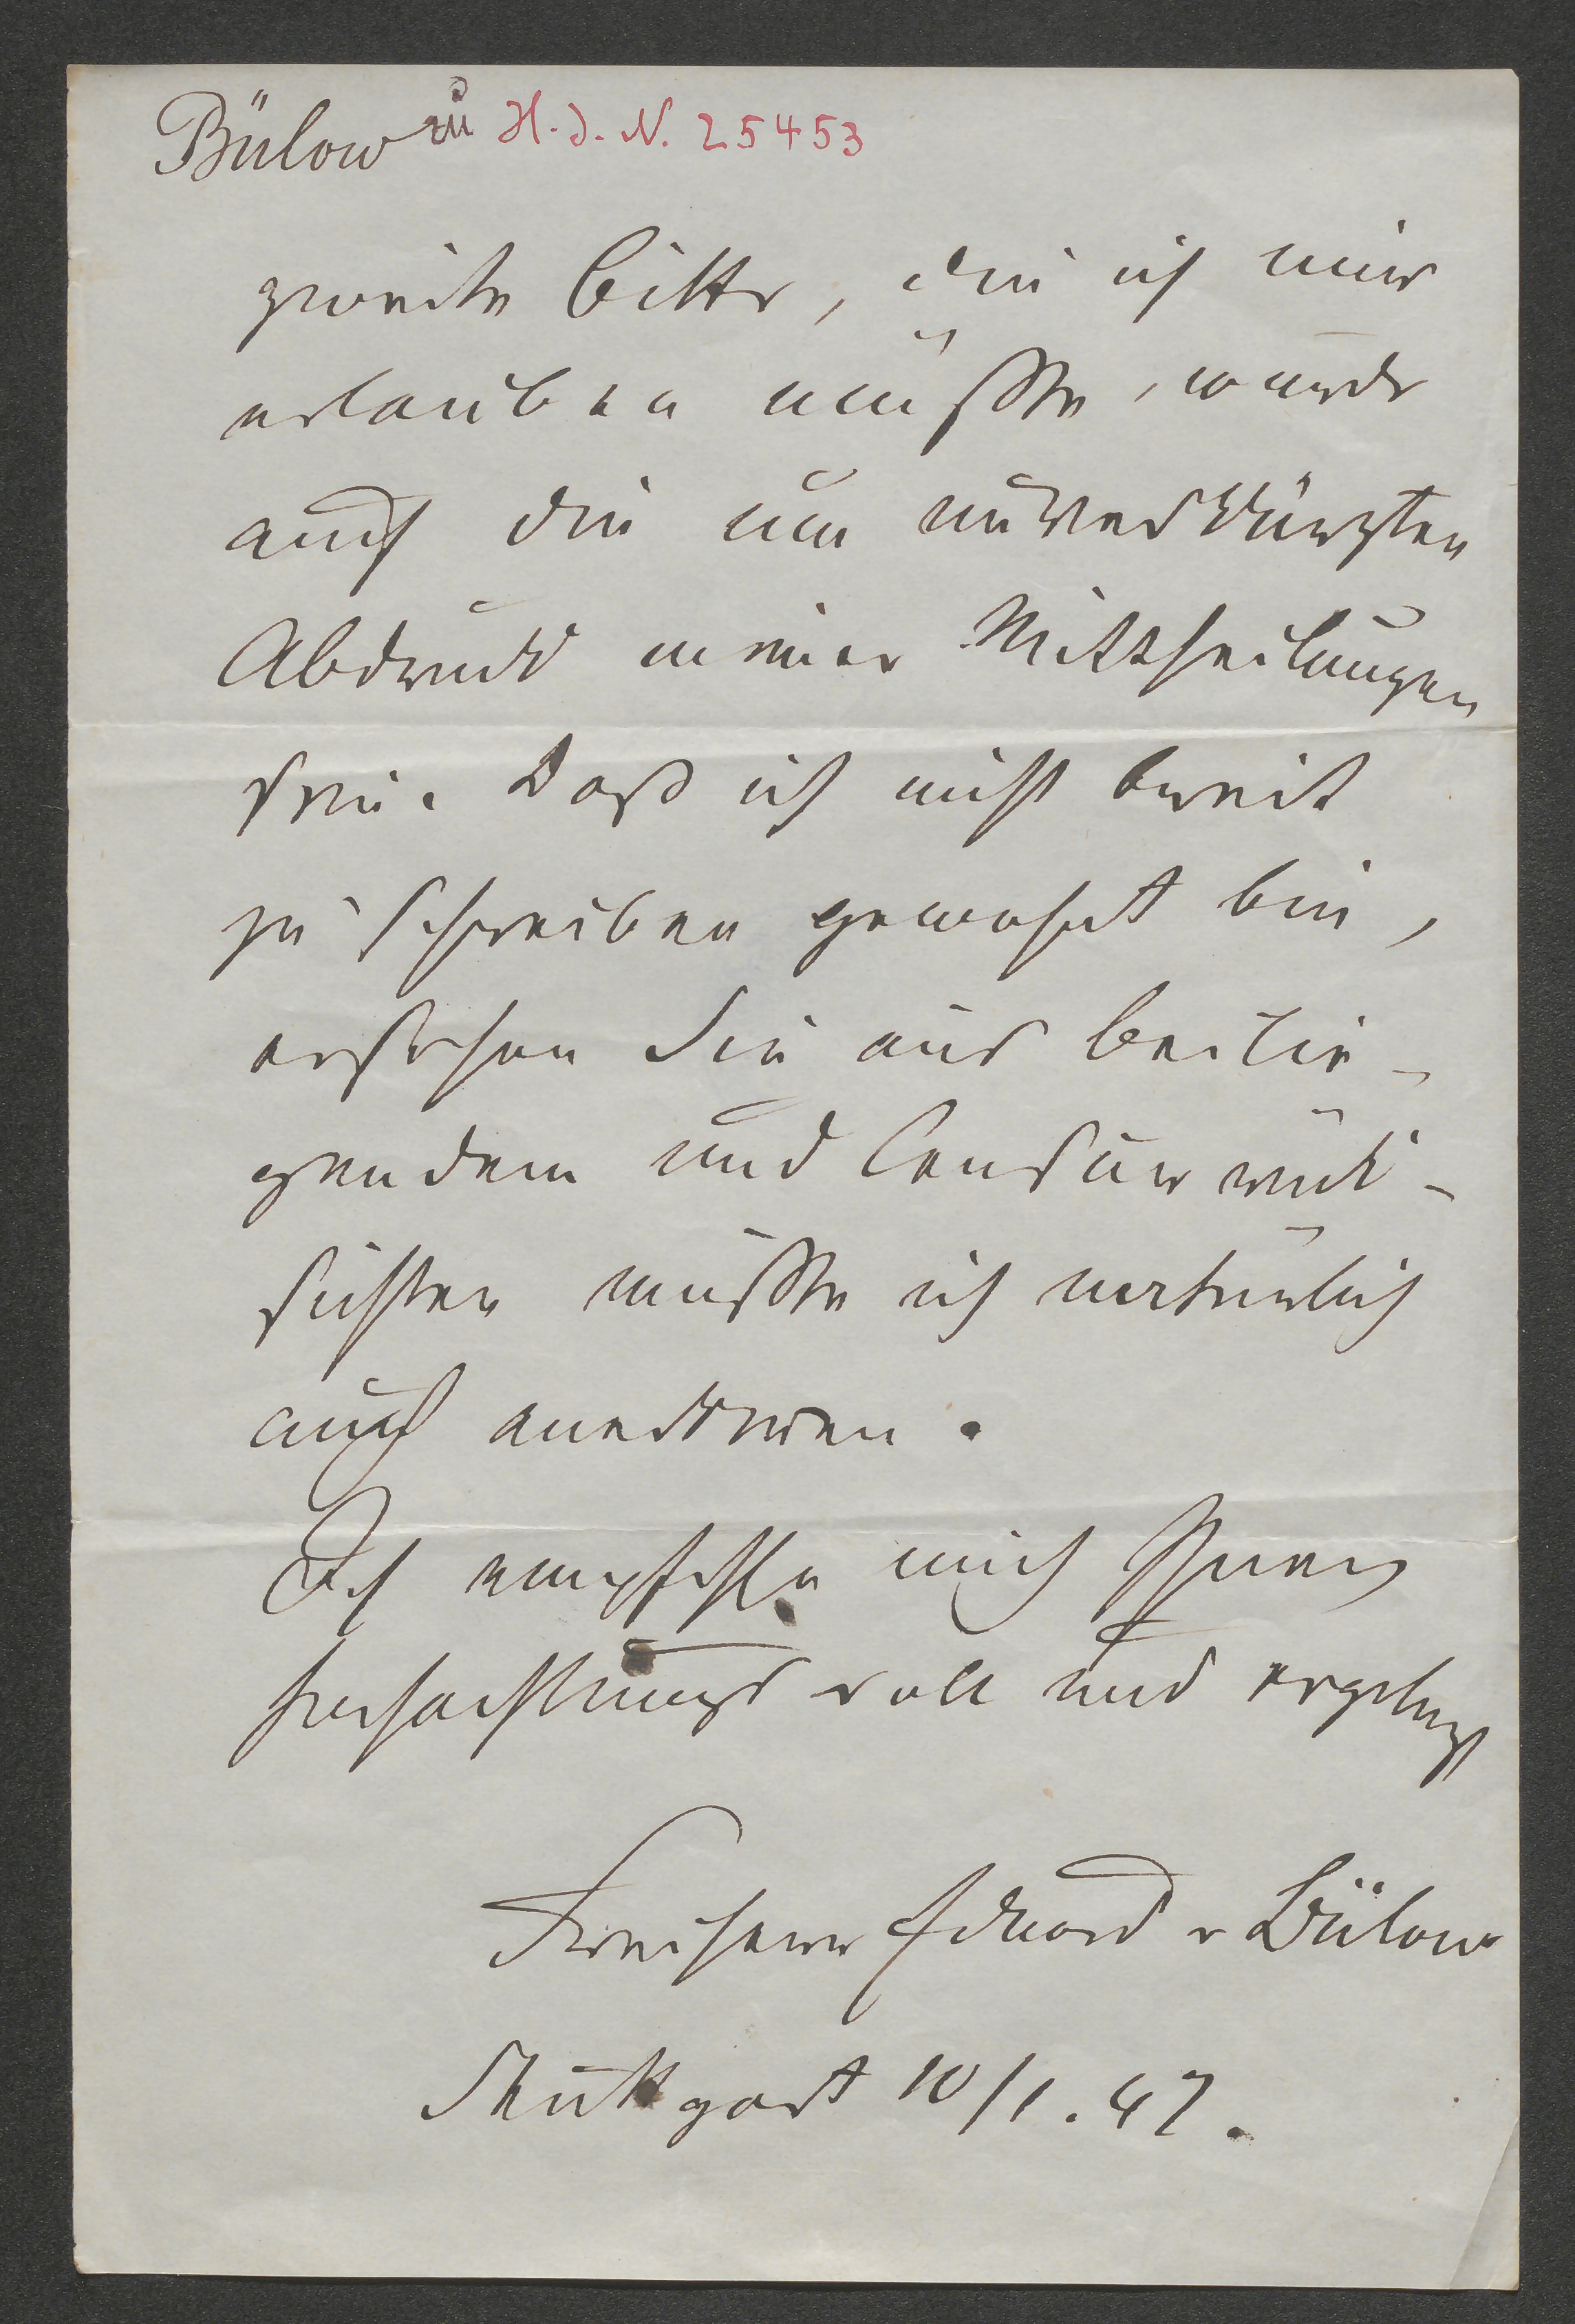 Bülow zu H. I. N. 25453
zweite Bitte, die ich mir
erlauben müßte, würde
auch die um unverkürzten
Abdruck meiner Mittheilungen
sein. Daß ich nicht breit
zu schreiben gewohnt bin,
ersehen Sie aus beilie-
gendem und Censurrück-
sichten müßte ich natürlich
auch anerkennen.
Ich empfehle mich Ihnen
hochachtungsvoll und ergebenst
Freiherr Eduard v Bülow
Stuttgart 10/1. 47.